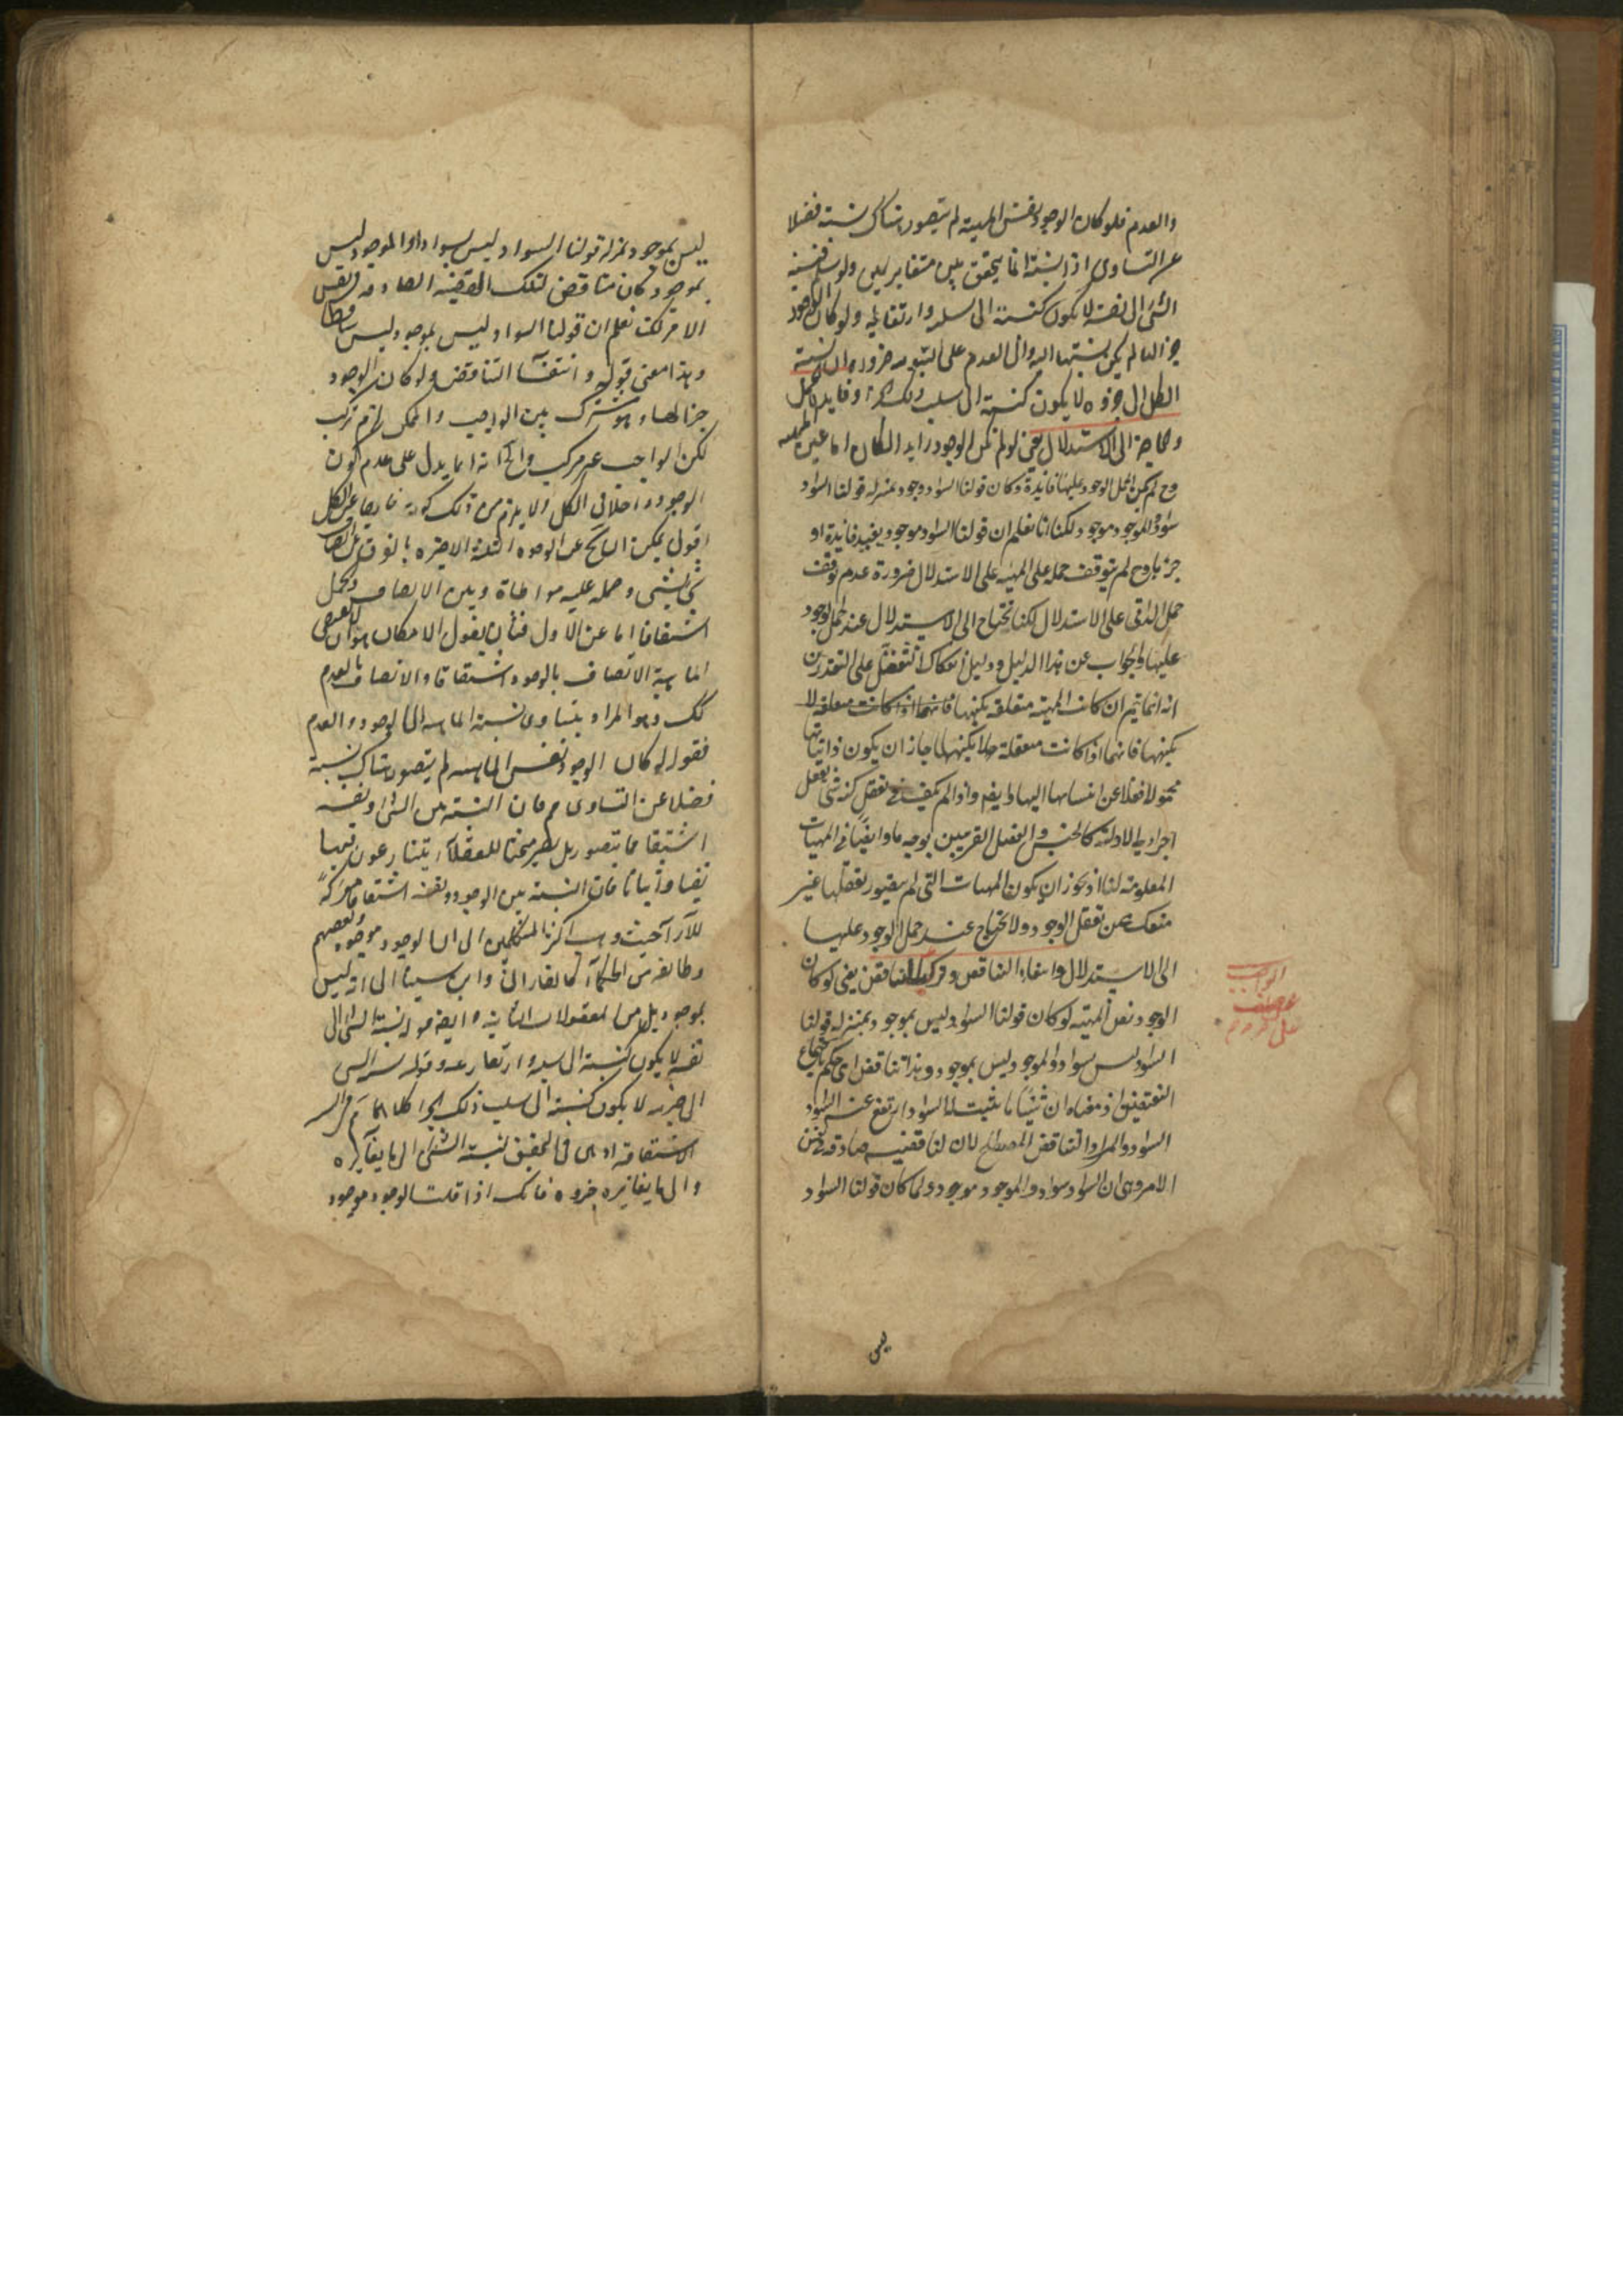 والعدم فلو كان الوجود نفس المهية لم يتصور هناك نسبة فضلا
عن التساوى اذ النسبة انما يتحقق بين متغايرين ولو نسبة
الشئ الى نفسه لا يكون كنسبته الى سلبه وارتفاعه ولو كان الوجود
جزءا لها لم يكن نسبتها اليه والى العدم على السوية ضرورة ان نسبة
الكل الى جزءه لا يكون كنسبته الى سلب ذلك الجزء وفايدة الحمل
والحاجة الى الاستدلال يعنى لو لم يكن الوجود زايدا لكان اما عين المهية
وح لم يكن لحمل الوجود عليها فايدة وكان قولنا السواد موجود بمنزلة قولنا السواد
سواد والموجود موجود لكنا نعلم ان قولنا السواد موجود يفيد فايدة او
جزءها وح لم يتوقف حمله على المهية على الاستدلال ضرورة عدم توقف
حمل الذاتى على الاستدلال لكنا نحتاج الى الاستدلال عند حمل الوجود
عليها والجواب عن هذا الدليل ودليل انفكاك التعقل على التقديرين
انه انما يتم ان كانت المهية متعقلة بكنهها فانها اذا كانت متعقلة لا
بكنهها فانها اذا كانت متعقلة لا بكنهها جاز ان يكون ذاتياتها
مجهولا فضلا عن انتسابها اليها وايضا اذا لم يكف فى تعقل كنه شئ تعقل
اجزائه الاولية كالجنس والفصل القريبين بوجه ما وايضا فى المهيات
المعلومة لنا اذ يجوز ان يكون المهيات التى لم يتصور تعقلها غير
منفك عن تعقل الوجود ولا نحتاج عند حمل الوجود عليها
الى الاستدلال وانتفاء التناقض وتركب التناقض يعنى لو كان
الوجود نفس المهية لو كان قولنا السواد ليس بموجود بمنزلة قولنا
السواد ليس بسواد والموجود ليس بموجود وهذا تناقض اى حكم باجتماع
النقيضين اذ معناه ان شيئا ما يثبت له السواد ارتفع عنه السواد
السواد والمراد التناقض المصطلح لان لنا قضية صادقة فى نفس
الامر وهى ان السواد سواد والموجود موجود ولما كان قولنا السواد
ليس
ليس بموجود بمنزلة قولنا السواد ليس بسواد او الموجود ليس
بموجود كان مناقضا لتلك القضية الصادقة فى نفس
الامر لكنا نعلم ان قولنا السواد ليس بموجود ليس مناقضا
وهذا معنى قوله وانتفاء التناقض ولو كان الوجود
جزءا لها وهو مشترك بين الواجب والممكن لزم تركب
لكن الواجب غير مركب وانه انما يدل على عدم كون
الوجود داخلا فى الكل ولا يلزم من ذلك كونه خارجا عن الكل
اقول يمكن البحث عن الوجوه الثلثة الاخيرة بالفرق بين اتصاف
شئ بشئ وحمله عليه مواطاة وبين الاتصاف والحمل
اشتقاقا اما عن الاول فبأن يقول الامكان هو ان لا يقتضى
الماهية الاتصاف بالوجود اشتقاقا والاتصاف بالعدم
كك وهو المراد بتساوى نسبة الماهية الى الوجود والعدم
فقوله لو كان الوجود نفس الماهية لم يتصور هناك نسبة
فضلا عن التساوى مم فان النسبة بين الشئ ونفسه
اشتقاقا مما يتصور بل يصير مبحثا للعقلاء يتنازعون فيها
نفيا واثباتا فان النسبة بين الوجود ونفسه اشتقاقا معركة
للآراء حيث ذهب اكثر المتكلمين الى ان الوجود موجود وبعضهم
وطائفة من الحكماء كالفارابى وابن سينا الى انه ليس
بموجود بل من المعقولات الثانية وايضا قوله نسبة الشئ الى
نفسه لا يكون كنسبته الى سلبه وارتفاعه وقوله نسبة الشئ
الى جزئه لا يكون كنسبته الى سلب ذلك الجزء كلاهما مم فى النسبة
الاشتقاقية اذ هى فى الحقيقة نسبة الشئ الى ما يغايره
والى ما يغاير جزءه فانك اذا قلت الوجود موجود